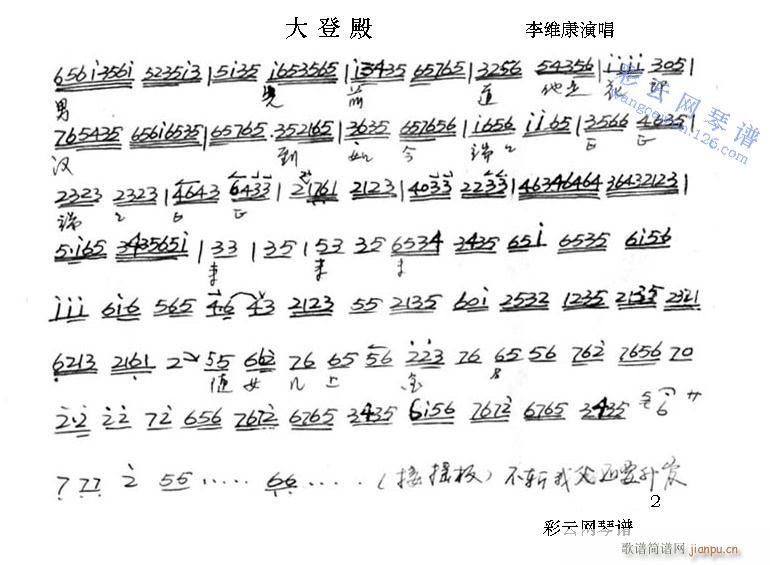 大登殿 李维康演唱
656i356i 52353i3 | 5i35 i653565 | i3435 65765 | 3256 54356 | iiii 305 |
男 先 前 道 他是
彩云网琴谱
765435 65616535 | 65765. 352165 | 3635 657656 | i656 ii65 | 3566 4635 |
汉 到 如 今 端
2323 2323 | 4643 6433 | 21761 2123 | 4033 2233 | 46346464 36432123 |
端
5·i65 343565i | 33 | 35 | 53 35 6534 3435 65i 6535 6i56
来 来
iii 6i·6 565 4·6 43 2123 55 2135 60i 2532 1235 2135 2321
6213 2161 2 55 662 76 65 56 223 76 65 56 762 7656 70
随 女 儿 上 金
2·2 22 72 656 7672 6765 3435 6i56 7672 6765 3435 6
7 77 2 55 …… 66 …… （接摇板）不斩我父还要升赏
2
彩云网琴谱
歌谱简谱网 jianpu.cn